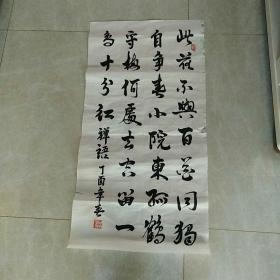 此花不與百花同獨
自爭春小院東孤鶴
守梅何處去空留一
鳥十分紅禅語丁酉年